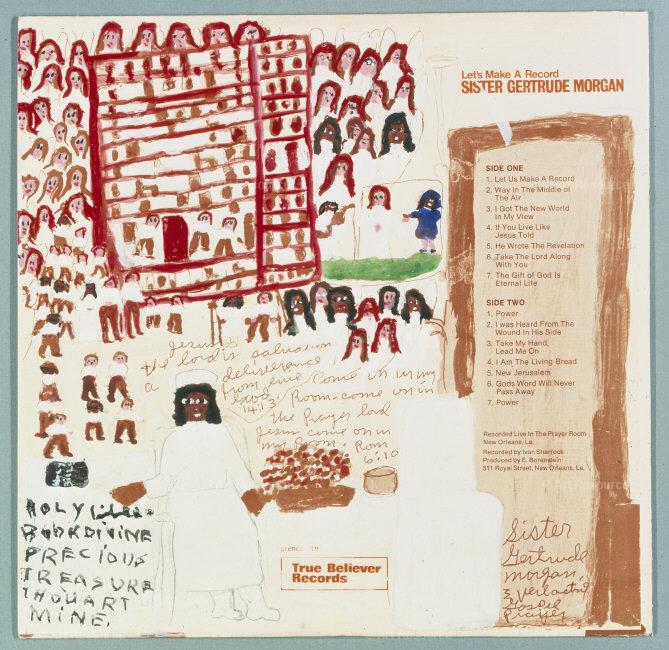 Let's Make A Record
SISTER GERTRUDE MORGAN
SIDE ONE
1. Let Us Make A Record
2. Way In The Middle of
The Air
3. I Got The New World
In My View
4. If You Live Like
Jesus Told
5. He Wrote The Revelation
6. Take The Lord Along
With You
7. The Gift of God Is
Eternal Life
SIDE TWO
1. Power
2. I was Heard From The
Wound In His Side
3. Take My Hand,
Lead Me On
4. I Am The Living Bread
5. New Jerusalem
6. Gods Word Will Never
Pass Away
7. Power
Recorded Live In The Prayer Room
New Orleans, La.
Recorded by Ivan Sharrock
Produced by E. Borenstein
511 Royal Street, New Orleans, La.
Jesus is
the lord is salvation
a deliverence
from evil Come in in my
14:13 Room. come on in
the Prayer lord
Jesus come on in
my Room. Rom
6:10
HOLY
BOOK DIVINE
PRECIOUS
TREASURE
THOU ART
MINE.
STEREO
True Believer
Records
Sister
Gertrude
morgan,
Everlasting
Gospel
Prayer